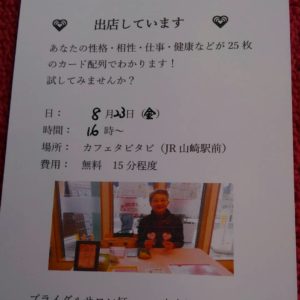 出店しています
あなたの性格・相性・仕事・健康などが25枚
のカード配列でわかります！
試してみませんか？
日： 8月23日（金）
時間： 16時～
場所： カフェタビタビ（JR山崎駅前）
費用： 無料 15分程度